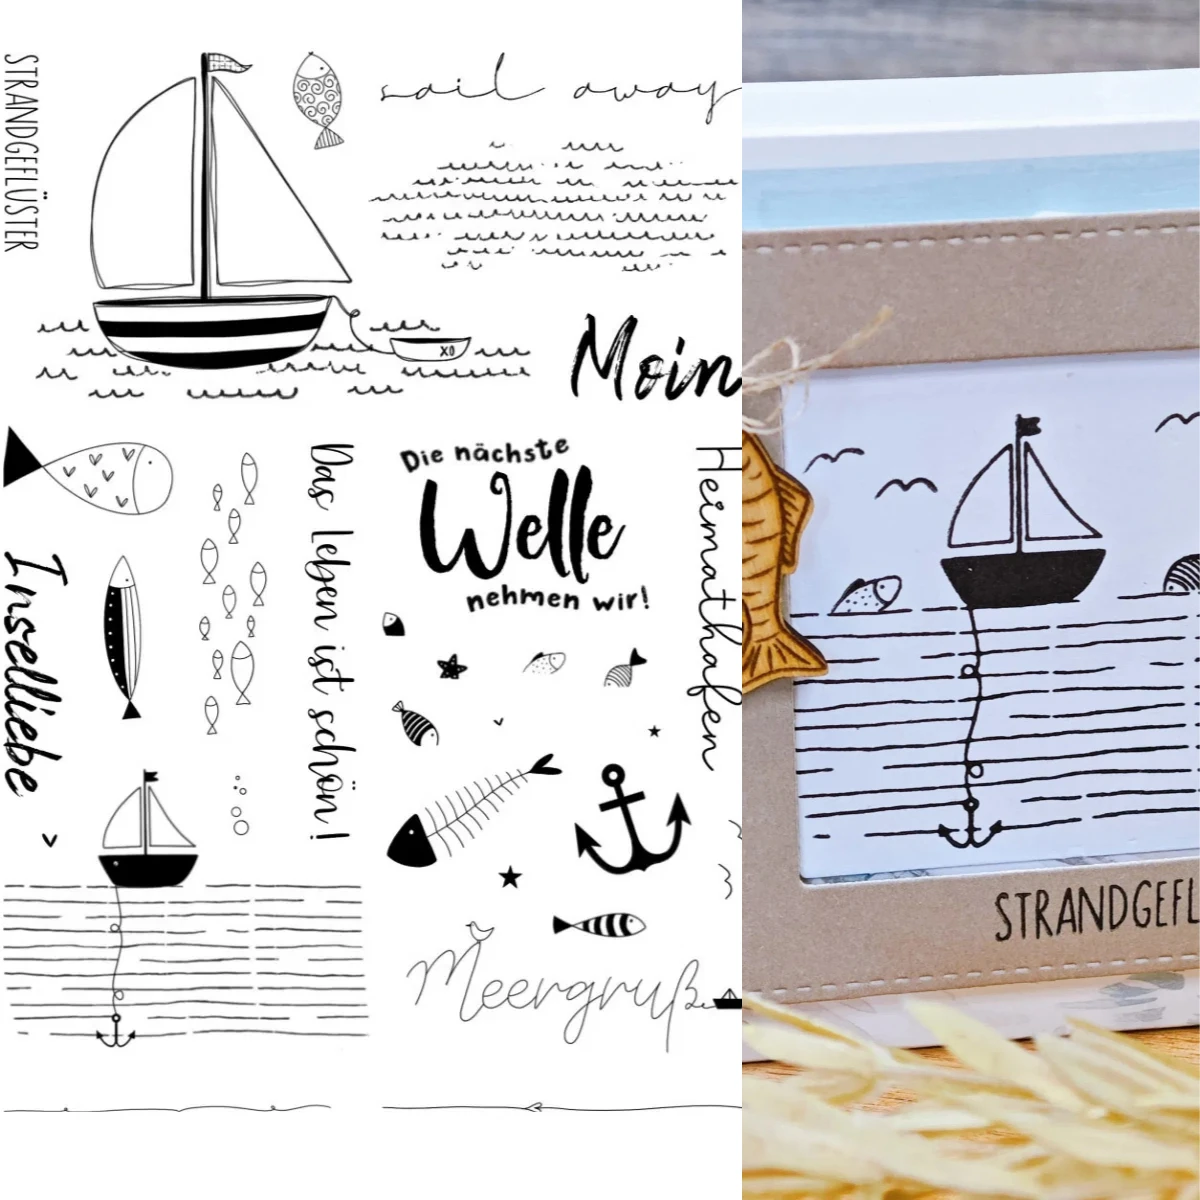 STRANDGEFLÜSTER
sail away
XO
Moin
Die nächste
Welle
nehmen wir!
Das Leben ist schön!
Heimathafen
Inselliebe
Meergrüße
STRANDGEFL